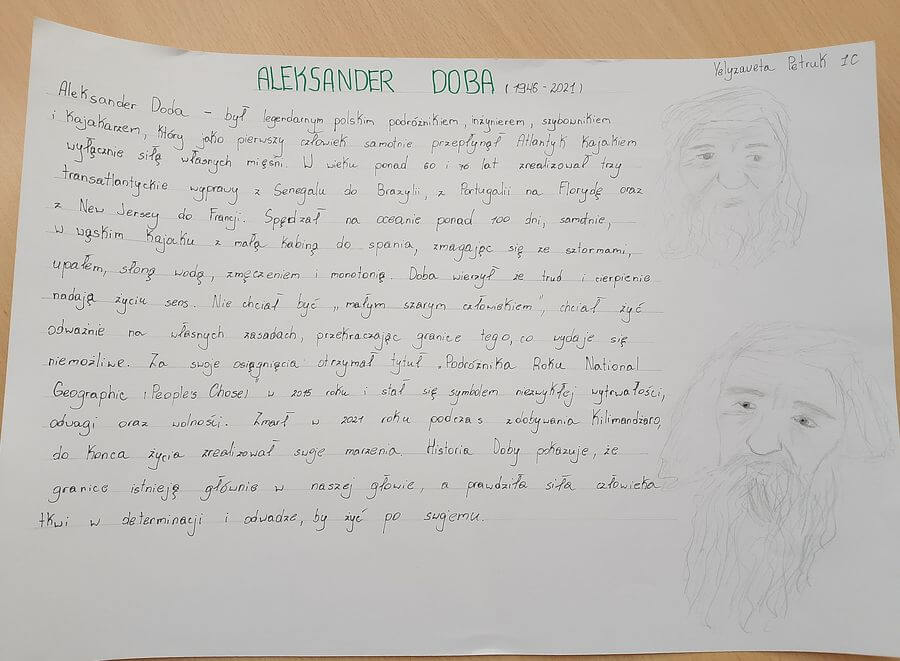 Yelyzaveta Petruk 1C
ALEKSANDER DOBA (1946-2021)
Aleksander Doda - był legendarnym polskim podróżnikiem, inżynierem, szybownikiem
i Kajakarzem, który jako pierwszy człowiek samotnie przepłynął Atlantyk Kajakiem
wyłącznie siłą własnych mięśni. W wieku ponad 60 i 70 lat zrealizował trzy
transatlantyckie wyprawy z Senegalu do Brazylii, z Portugalii na Florydę oraz
z New Jersey do Francji. Spędzał na oceanie ponad 100 dni, samotnie,
w wąskim Kajaku z małą kabiną do spania, zmagając się ze sztormami,
upałem, słoną wodą, zmęczeniem i monotonią. Doba wierzył że trud i cierpienie
nadają życiu sens. Nie chciał być "małym szarym człowiekiem", chciał żyć
odważnie na własnych zasadach, przekraczając granice tego, co wydaje się
niemożliwe. Za swoje osiągnięcia otrzymał tytuł "Podróżnika Roku National
Geographic (People's Chose)" w 2015 roku i stał się symbolem niezwykłej wytrwałości,
odwagi oraz wolności. Zmarł w 2021 roku podczas zdobywania Kilimandżaro,
do Końca życia zrealizował swoje marzenia. Historia Doby pokazuje, że
granice istnieją głównie w naszej głowie, a prawdziła siła człowieka
tkwi w determinacji i odwadze, by żyć po swojemu.